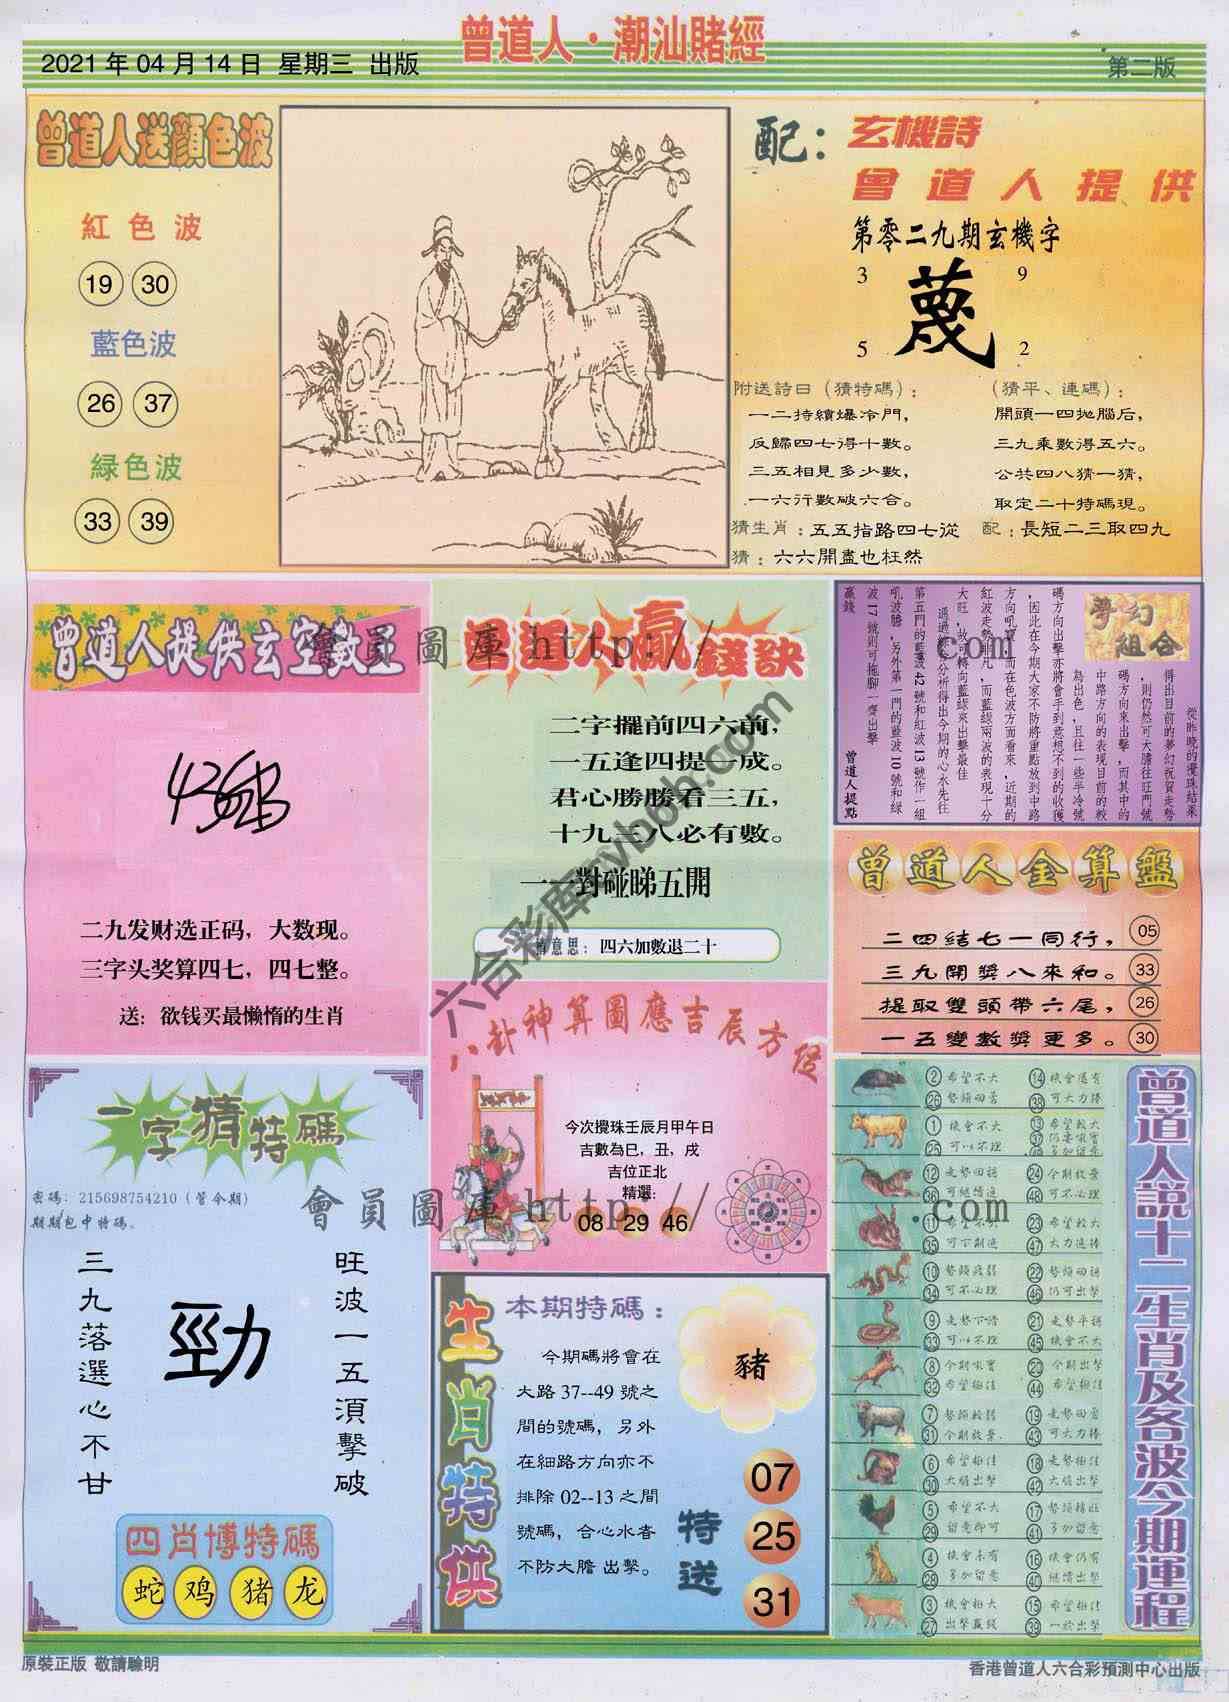 曾道人·潮汕賭經
2021年04月14日 星期三 出版
第二版
曾道人送顏色波
紅色波
19 30
藍色波
26 37
緑色波
33 39
配：
玄機詩
曾道人提供
第零二九期玄機字
3 9
蔑
5 2
附送詩曰（猜特碼）：
一二持續爆冷門，
反歸四七得十數。
三五相見多少數，
一六行數破六合。
（猜平、連碼）：
開頭一四抛腦后，
三九乘數得五六。
公共四八猜一猜，
取定二十特碼現。
猜生肖：五五指路四七從
配：長短二三取四九
猜：六六開盡也枉然
曾道人提供玄空數
二九发财选正码，大数现。
三字头奖算四七，四七整。
送：欲钱买最懒惰的生肖
會員圖庫 http://
.com
曾道人贏錢訣
二字擺前四六前，
一五逢四提一成。
君心勝勝看三五，
十九三八必有數。
一一對碰睇五開
曾意思：四六加數退二十
夢幻組合
從昨晚的攪珠結果
得出目前的夢幻祝賀走勢
，則仍然可大膽往旺門號
碼方向來出擊，而其中的
中路方向的表現目前的較
為出色，且往一些半冷號
碼方向出擊亦將會手到意想不到的收獲
，因此在今期大家不防將重點放到中路
紅波走勢非凡，而藍綠兩波的表現十分
大旺，故可轉向藍綠來出擊最佳
第五門的藍波42號和紅波13號作一組
波17號則可拖腳一齊出擊
贏錢
曾道人提點
曾道人金算盤
二四結七一同行， 05
三九開獎八來和。 33
提取雙頭帶六尾， 26
一五變數獎更多。 30
六合彩库
八卦神算圖應吉辰方位
今次攪珠壬辰月甲午日
吉數為巳，丑，戌
吉位正北
精選：
08 29 46
一字猜特碼
密碼：215698754210（管今期）
期期包中特碼。
旺波一五須擊破
勁
三九落選心不甘
四肖博特碼
蛇 鸡 猪 龙
會員圖庫 http://
.com
生肖特供
本期特碼：
今期碼將會在
大路37--49號之
間的號碼，另外
在細路方向亦不
排除02--13之間
號碼，合心水者
不防大膽出擊。
豬
特送
07
25
31
曾道人説十二生肖及各波今期運程
② 希望不大 ⑭ 機會還有
㊳ 可大力捧
① 機會不大
㉕ 可以不理
⑫ 走勢回穩 ㉔ 今期放棄
㊱ 可繼續追 ㊽ 可不必理
㉓ 希望較大
㉟ 可下副追 ㊼ 大力追捧
⑩ 勢頭疲弱
㉞ 可不必理 ㊻ 仍可出擊
⑨ 走勢下滑 ㉑ 走勢平穩
㉝ 可以不理 ㊺ 機會不大
⑳ 今期出擊
㉜ 希望極佳 ㊹ 希望極佳
⑦ 勢頭較弱
㉛ 今期放棄 ㊸ 可大力捧
⑥ 希望極佳 ⑱ 走勢極佳
㉚ 大膽出擊 ㊷ 大膽出擊
⑤ 希望不大
㉙ 留意即可 ㊶ 多加留意
④ 機會未有 ⑯ 機會仍有
㉘ 多加留意 ㊵ 繼續出擊
③ 機會極大 ⑮ 希望極佳
㉗ 出擊贏錢 ㊴ 一於出擊
原裝正版 敬請驗明
香港曾道人六合彩預測中心出版